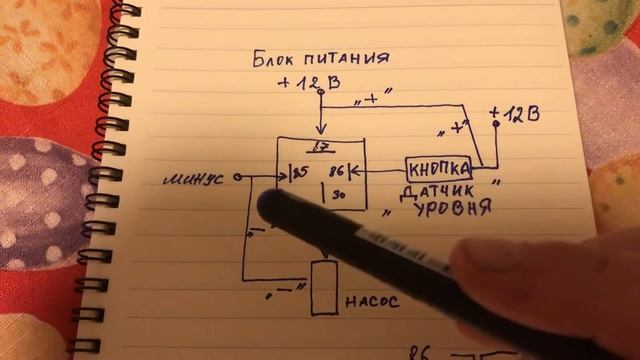 БЛОК ПИТАНИЯ
+ 12 В
„+”
„+”
+ 12 В
87
85
86
30
КНОПКА
МИНУС
„ ДАТЧИК
УРОВНЯ ”
„–”
„–”
НАСОС
86